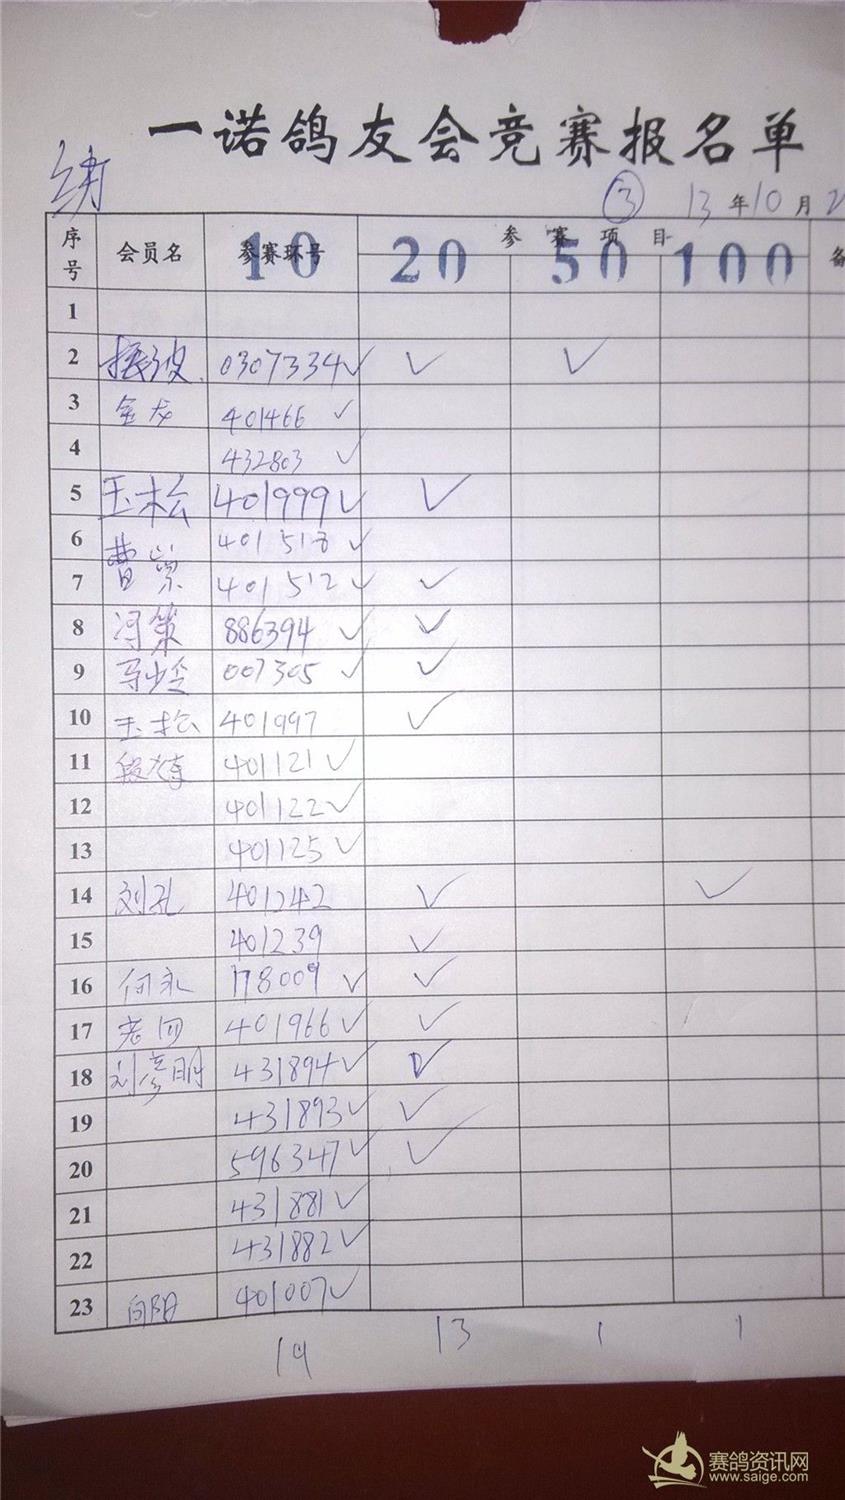 一诺鸽友会竞赛报名单
③ 13年10月2
序号 会员名 参赛环号 10 参赛项目 20 50 100 备
1
2 振波 0307334 ✓ ✓ ✓
3 金龙 401466 ✓
4 432803 ✓
5 玉松 401999 ✓ ✓
6 曹 401518 ✓
7 401512 ✓ ✓
8 冯策 886394 ✓ ✓
9 马少令 007305 ✓ ✓
10 玉松 401997 ✓
11 401121 ✓
12 401122 ✓
13 401125 ✓
14 刘孔 401242 ✓ ✓
15 401239 ✓
16 何永 178009 ✓ ✓
17 老四 401966 ✓ ✓
18 刘彦明 431894 ✓ ✓
19 431893 ✓ ✓
20 596347 ✓ ✓
21 431881 ✓
22 431882 ✓
23 向阳 401007 ✓
19 13 1 1
赛鸽资讯网
www.saige.com